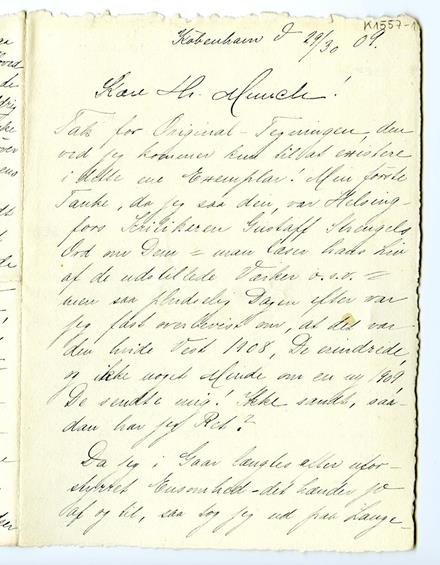 K1557-1
København d 29/30 09.
Kære Hr. Munch!
Tak for Original-Tegningen, den
ved jeg kommer kun til at existere
i dette ene Exemplar! Min første
Tanke, da jeg saa den, var Helsing-
fors Kritikeren Gustaff Strengels
Ord om Dem = man læser hans Liv
af de udstillede Værker o.s.v. =
men saa pludselig Dagen efter var
jeg fast overbevist om, at det var
den hvide Vest 1908, De erindrede,
og ikke noget Minde om en ny 1909
De sendte mig! Ikke sandt, saa-
dan har jeg Ret?
Da jeg i Gaar længtes efter ufor-
styrret Ensomhed - det hænder jo
af og til, saa tog jeg ud paa Lange-